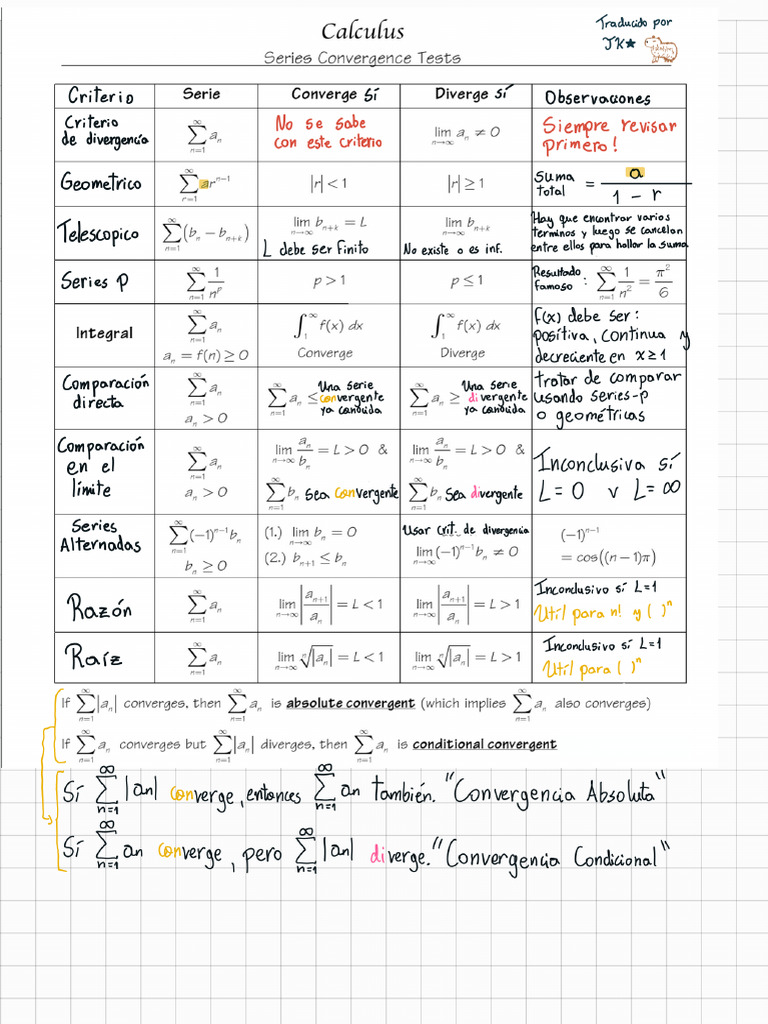 Calculus
Series Convergence Tests
Traducido por
JK★
Criterio | Serie | Converge Sí | Diverge Sí | Observaciones
Criterio de divergencia | ∑_{n=1}^{∞} a_n | No se sabe con este criterio | lim_{n→∞} a_n ≠ 0 | Siempre revisar primero!
Geometrico | ∑_{r=1}^{∞} ar^{n-1} | |r| < 1 | |r| ≥ 1 | Suma total = a / (1 - r)
Telescopico | ∑_{n=1}^{∞} (b_n - b_{n+k}) | lim_{n→∞} b_{n+k} = L L debe ser finito | lim_{n→∞} b_{n+k} No existe o es inf. | Hay que encontrar varios terminos y luego se cancelan entre ellos para hallar la suma.
Series P | ∑_{n=1}^{∞} 1/n^p | p > 1 | p ≤ 1 | Resultado famoso : ∑_{n=1}^{∞} 1/n² = π²/6
Integral | ∑_{n=1}^{∞} a_n a_n = f(n) ≥ 0 | ∫_1^∞ f(x) dx Converge | ∫_1^∞ f(x) dx Diverge | f(x) debe ser : positiva, continua y decreciente en x ≥ 1
Comparación directa | ∑_{n=1}^{∞} a_n a_n > 0 | ∑_{n=1}^{∞} a_n ≤ Una serie convergente ya conocida | ∑_{n=1}^{∞} a_n ≥ Una serie divergente ya conocida | tratar de comparar usando series-p o geométricas
Comparación en el límite | ∑_{n=1}^{∞} a_n a_n > 0 | lim_{n→∞} a_n/b_n = L > 0 & ∑_{n=1}^{∞} b_n sea convergente | lim_{n→∞} a_n/b_n = L > 0 & ∑_{n=1}^{∞} b_n sea divergente | Inconclusiva sí L = 0 v L = ∞
Series Alternadas | ∑_{n=1}^{∞} (-1)^{n-1} b_n b_n ≥ 0 | (1.) lim_{n→∞} b_n = 0 (2.) b_{n+1} ≤ b_n | Usar crit. de divergencia lim_{n→∞} (-1)^{n-1} b_n ≠ 0 | (-1)^{n-1} = cos((n-1)π)
Razón | ∑_{n=1}^{∞} a_n | lim_{n→∞} |a_{n+1}/a_n| = L < 1 | lim_{n→∞} |a_{n+1}/a_n| = L > 1 | Inconclusivo sí L=1 Util para n! y ( )^n
Raíz | ∑_{n=1}^{∞} a_n | lim_{n→∞} ⁿ√|a_n| = L < 1 | lim_{n→∞} ⁿ√|a_n| = L > 1 | Inconclusivo sí L=1 Util para ( )^n
If ∑_{n=1}^{∞} |a_n| converges, then ∑_{n=1}^{∞} a_n is absolute convergent (which implies ∑_{n=1}^{∞} a_n also converges)
If ∑_{n=1}^{∞} a_n converges but ∑_{n=1}^{∞} |a_n| diverges, then ∑_{n=1}^{∞} a_n is conditional convergent
Sí ∑_{n=1}^{∞} |an| converge, entonces ∑_{n=1}^{∞} an también. "Convergencia Absoluta"
Sí ∑_{n=1}^{∞} an converge, pero ∑_{n=1}^{∞} |an| diverge. "Convergencia Condicional"